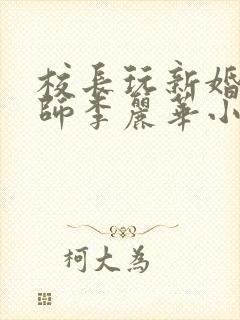 校長玩新婚
師李麗華小
柯大為